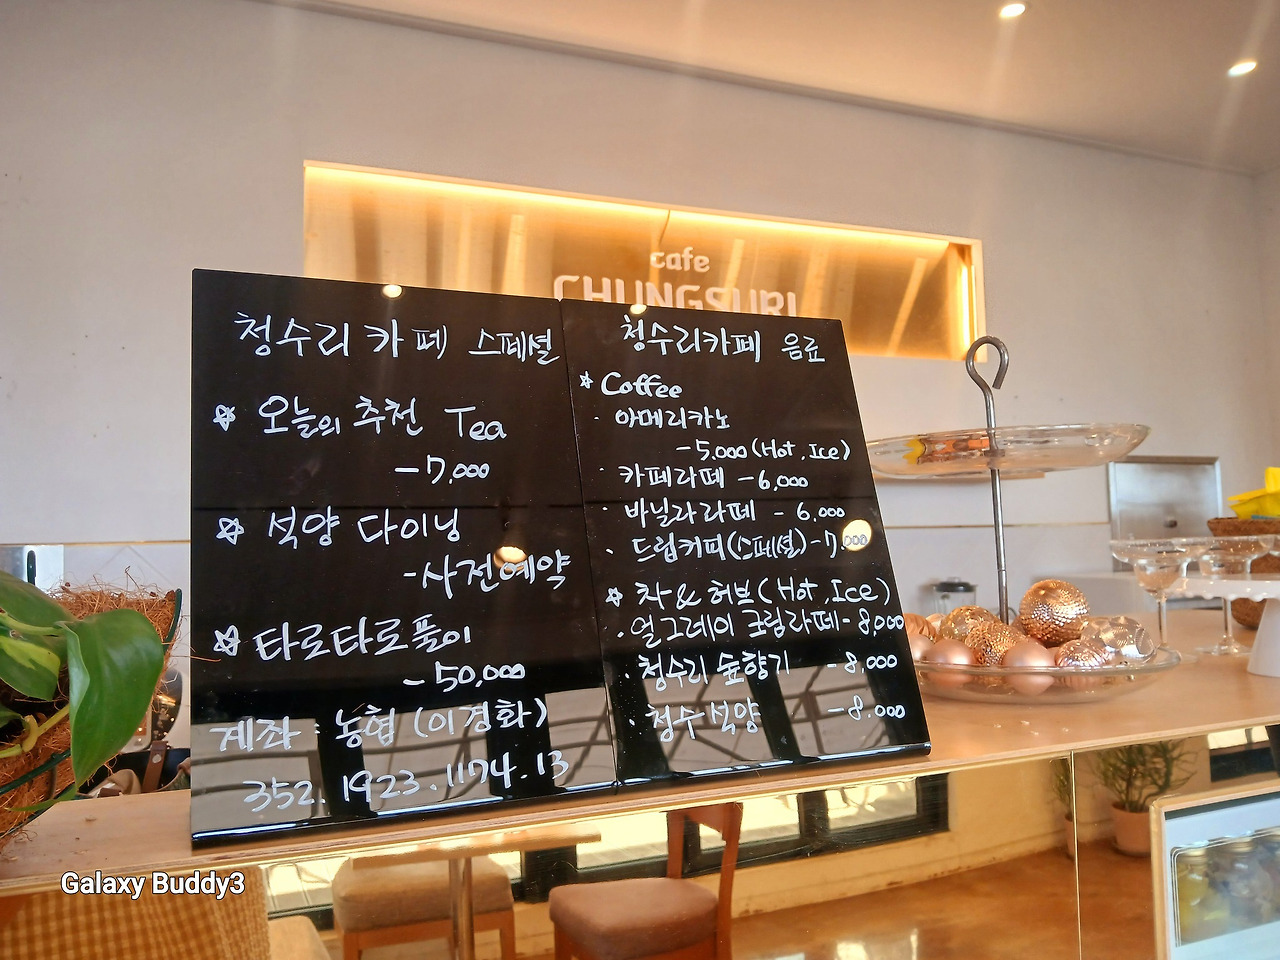 cafe
CHUNGSURI
청수리 카페 스페셜
☆ 오늘의 추천 Tea
-7,000
☆ 석양 다이닝
-사전예약
☆ 타로타로풀이
- 50,000
계좌 : 농협 (이경화)
352. 1923. 1174. 13
청수리카페 음료
☆ Coffee
· 아메리카노
-5.000 (Hot, Ice)
· 카페라떼 -6,000
· 바닐라라떼 - 6,000
· 드립커피(스페셜)-7.000
☆ 차 & 허브 (Hot, Ice)
· 얼그레이 크림라떼- 8,000
· 청수리 숲향기 -8,000
· 청수석양 -8.000
Galaxy Buddy3